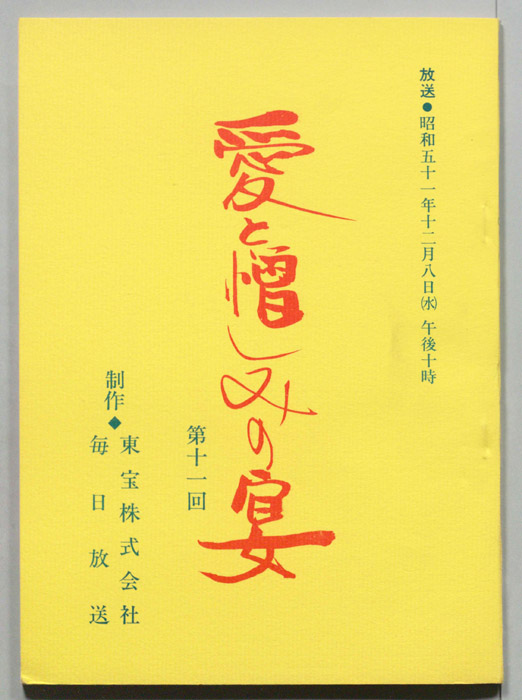 放送●昭和五十一年十二月八日㈬ 午後十時
愛と憎しみの宴
第十一回
制作◆
東宝株式会社
毎日放送